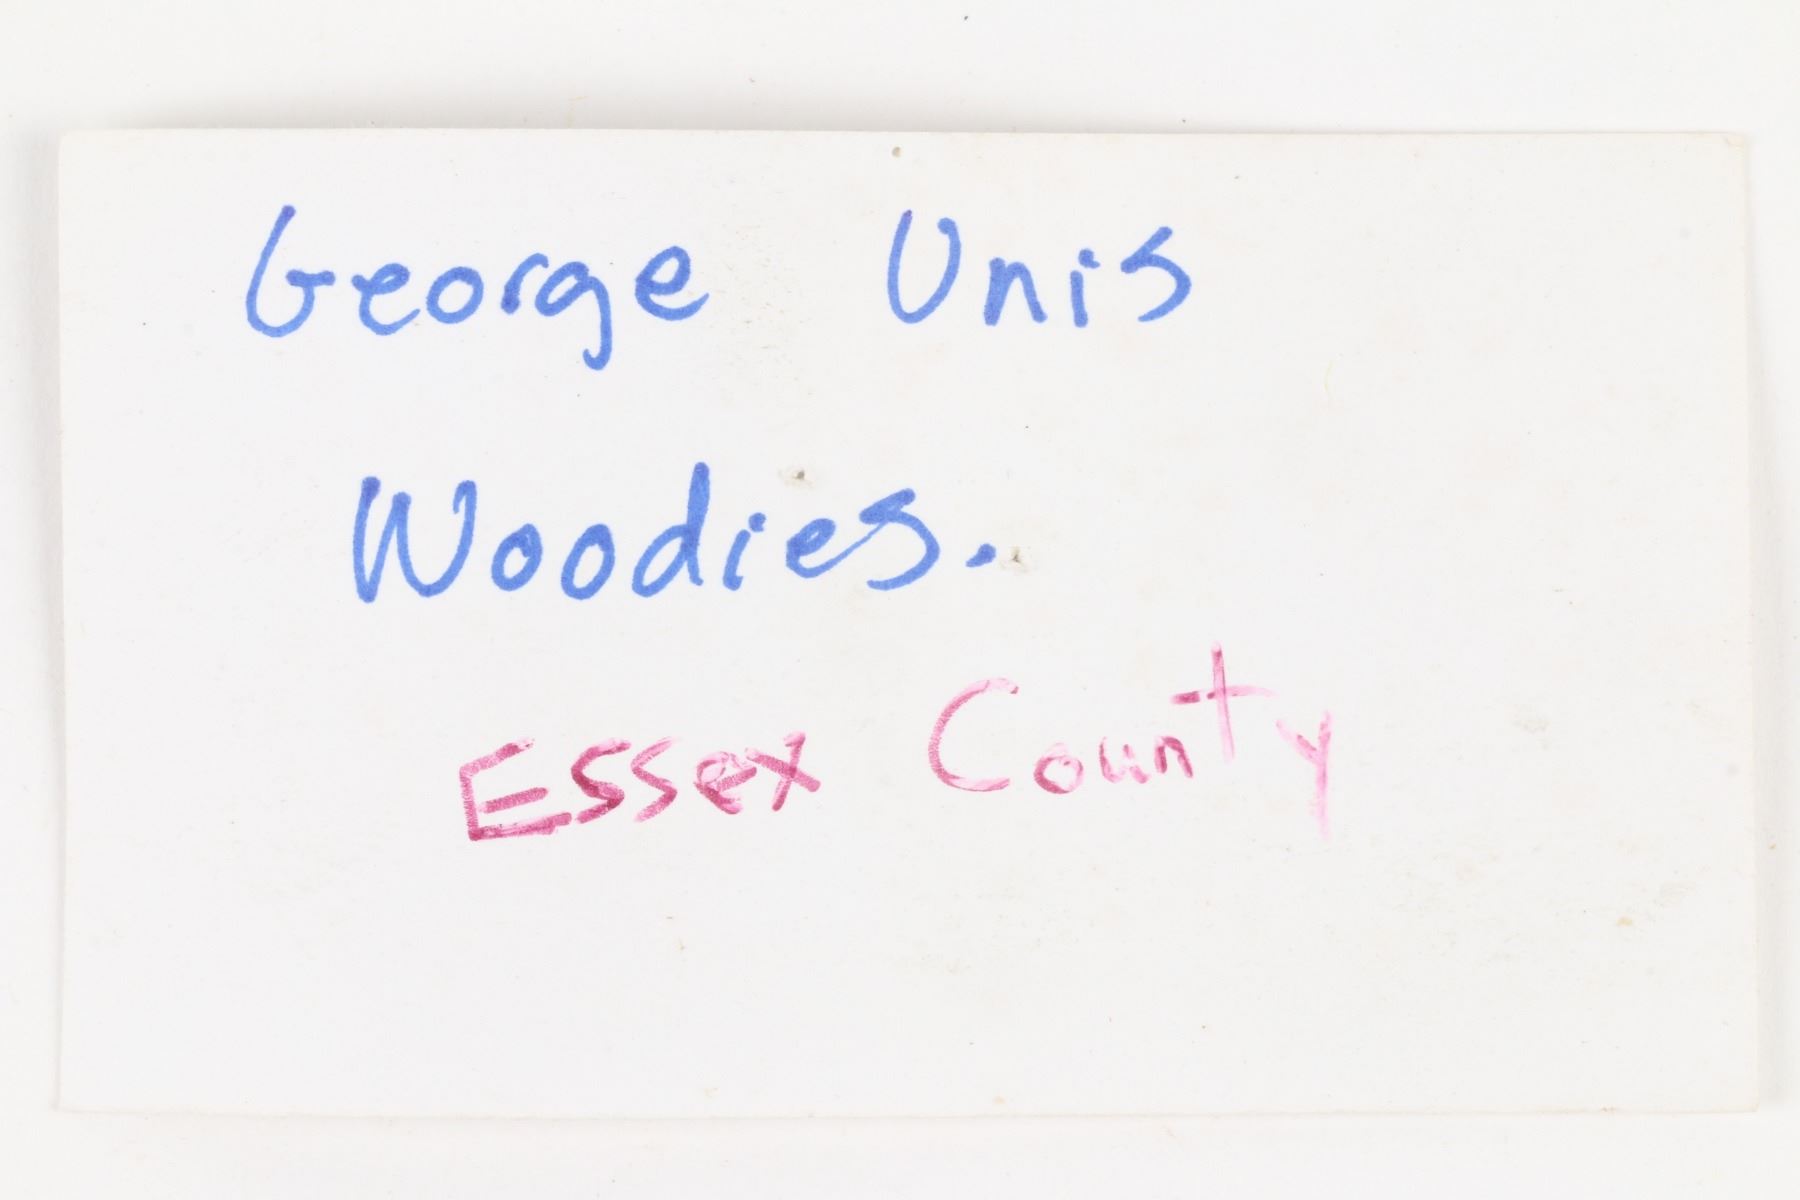 George Unis
Woodies.
Essex County